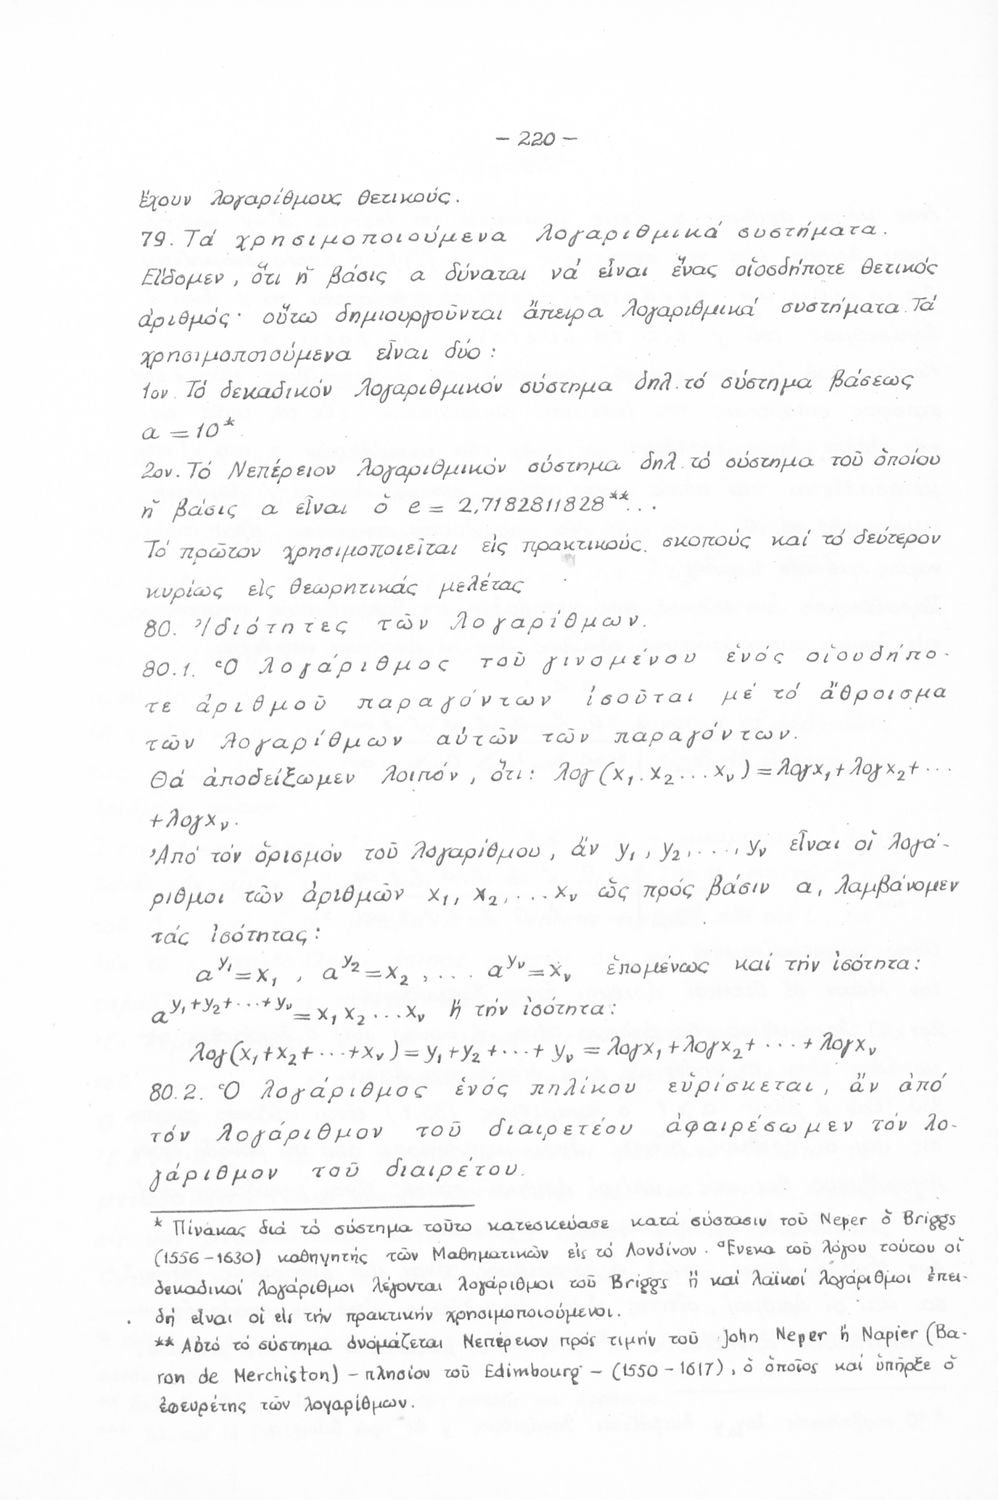 - 220 -
ἔχουν λογαρίθμους θετικούς.
79. Τά χρησιμοποιούμενα λογαριθμικά συστήματα.
Εἴδομεν, ὅτι ἡ βάσις a δύναται νά εἶναι ἕνας οἱοσδήποτε θετικός
ἀριθμός· οὕτω δημιουργοῦνται ἄπειρα λογαριθμικά συστήματα. Τά
χρησιμοποιούμενα εἶναι δύο:
1ον. Τό δεκαδικόν λογαριθμικόν σύστημα δηλ. τό σύστημα βάσεως
a = 10*
2ον. Τό Νεπέρειον λογαριθμικόν σύστημα δηλ. τό σύστημα τοῦ ὁποίου
ἡ βάσις a εἶναι ὁ e = 2,7182811828**...
Τό πρῶτον χρησιμοποιεῖται εἰς πρακτικούς σκοπούς καί τό δεύτερον
κυρίως εἰς θεωρητικάς μελέτας
80. Ἰδιότητες τῶν λογαρίθμων.
80.1. Ὁ λογάριθμος τοῦ γινομένου ἑνός οἱουδήπο-
τε ἀριθμοῦ παραγόντων ἰσοῦται μέ τό ἄθροισμα
τῶν λογαρίθμων αὐτῶν τῶν παραγόντων.
Θά ἀποδείξωμεν λοιπόν, ὅτι: λογ(x₁.x₂...xᵥ)=λογx₁+λογx₂+...
+λογxᵥ.
Ἀπό τόν ὁρισμόν τοῦ λογαρίθμου, ἄν y₁, y₂,..., yᵥ εἶναι οἱ λογά-
ριθμοι τῶν ἀριθμῶν x₁, x₂,...xᵥ ὡς πρός βάσιν a, λαμβάνομεν
τάς ἰσότητας:
a^y₁=x₁, a^y₂=x₂,... a^yᵥ=xᵥ ἑπομένως καί τήν ἰσότητα:
a^y₁+y₂+...+yᵥ=x₁x₂...xᵥ ἤ τήν ἰσότητα:
λογ(x₁+x₂+...+xᵥ)=y₁+y₂+...+yᵥ=λογx₁+λογx₂+...+λογxᵥ
80.2. Ὁ λογάριθμος ἑνός πηλίκου εὑρίσκεται, ἄν ἀπό
τόν λογάριθμον τοῦ διαιρετέου ἀφαιρέσωμεν τόν λο-
γάριθμον τοῦ διαιρέτου.
* Πίνακας διά τό σύστημα τοῦτο κατεσκεύασε κατά σύστασιν τοῦ Neper ὁ Briggs
(1556-1630) καθηγητής τῶν Μαθηματικῶν εἰς τό Λονδίνον. Ἕνεκα τοῦ λόγου τούτου οἱ
δεκαδικοί λογάριθμοι λέγονται λογάριθμοι τοῦ Briggs ἤ καί λαϊκοί λογάριθμοι ἐπει-
δή εἶναι οἱ εἰς τήν πρακτικήν χρησιμοποιούμενοι.
** Αὐτό τό σύστημα ὀνομάζεται Νεπέρειον πρός τιμήν τοῦ John Neper ἤ Napier (Ba-
ron de Merchiston) - πλησίον τοῦ Edimbourg - (1550-1617), ὁ ὁποῖος καί ὑπῆρξε ὁ
ἐφευρέτης τῶν λογαρίθμων.